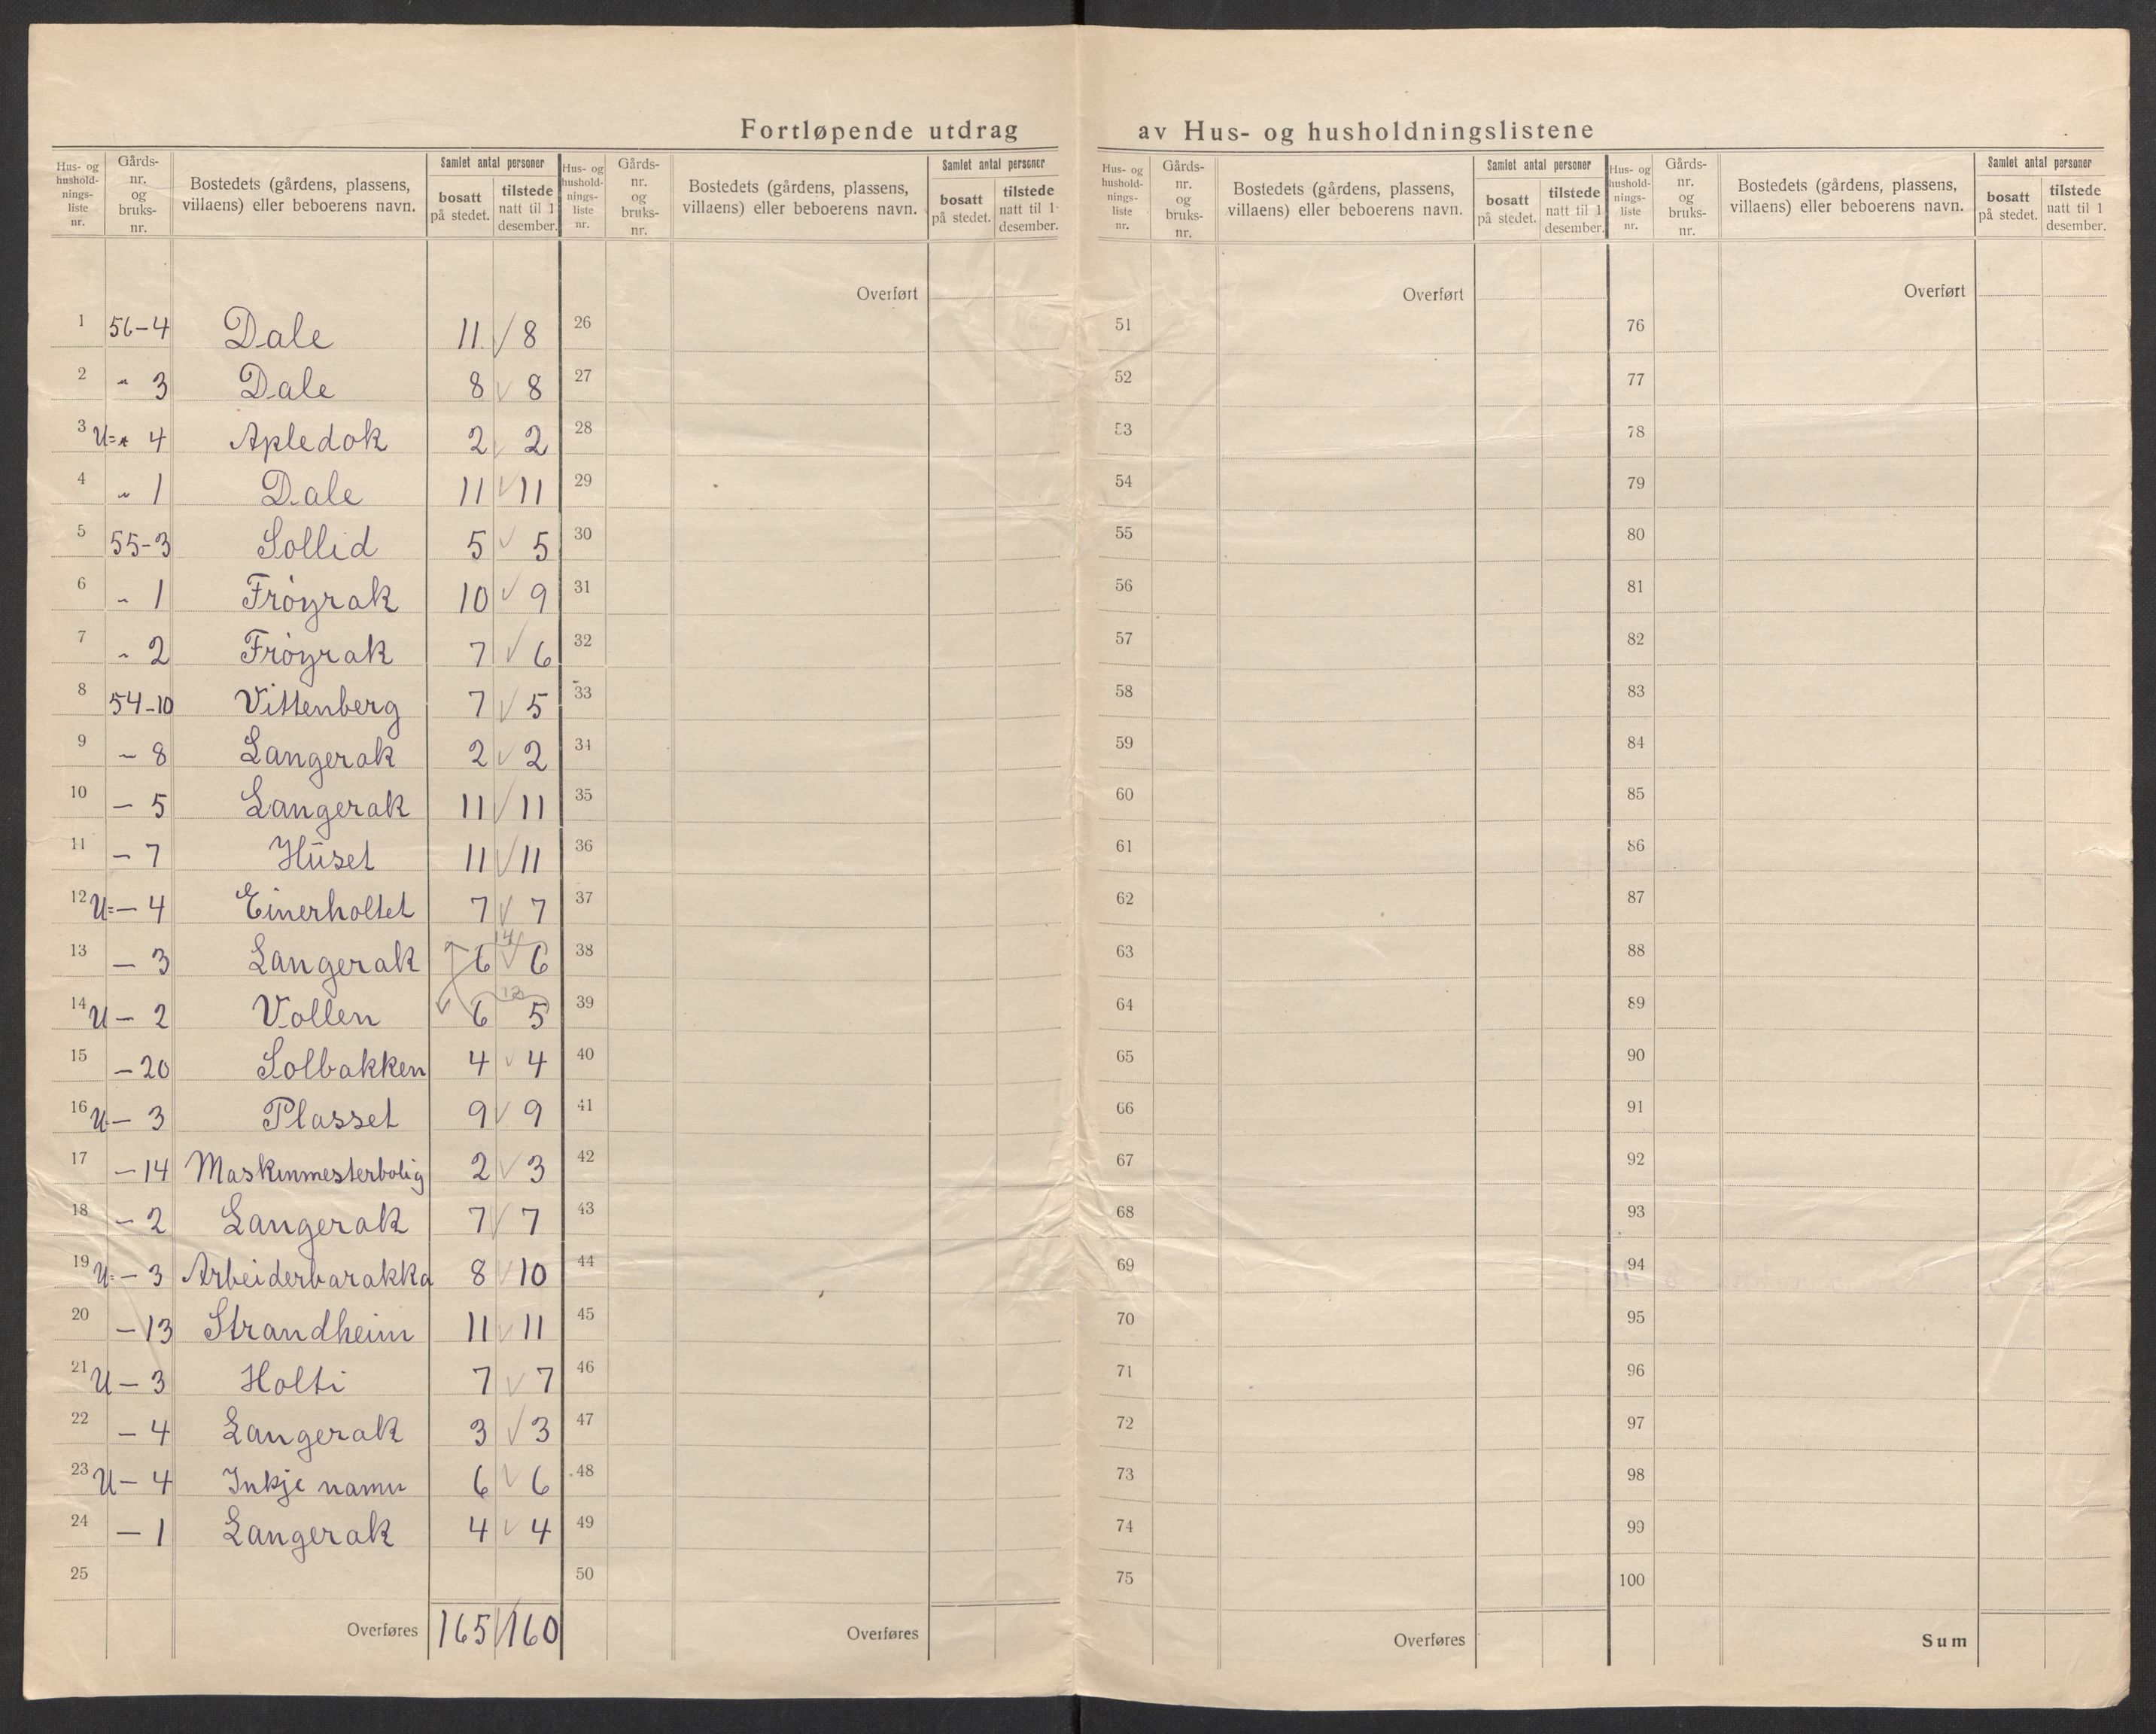 Fortløpende utdrag av Hus- og husholdningslistene
Hus- og hushold-nings-liste nr. Gårds-nr. og bruks-nr. Bostedets (gårdens, plassens, villaens) eller beboerens navn. Samlet antal personer bosatt på stedet. tilstede natt til 1 desember.
Hus- og hushold-nings-liste nr. Gårds-nr. og bruks-nr. Bostedets (gårdens, plassens, villaens) eller beboerens navn. Samlet antal personer bosatt på stedet. tilstede natt til 1 desember.
Hus- og hushold-nings-liste nr. Gårds-nr. og bruks-nr. Bostedets (gårdens, plassens, villaens) eller beboerens navn. Samlet antal personer bosatt på stedet. tilstede natt til 1 desember.
Hus- og hushold-nings-liste nr. Gårds-nr. og bruks-nr. Bostedets (gårdens, plassens, villaens) eller beboerens navn. Samlet antal personer bosatt på stedet. tilstede natt til 1 desember.
Overført Overført Overført
1 56-4 Dale 11 8 26 51 76
2 " 3 Dale 8 8 27 52 77
3 U=" 4 Apledok 2 2 28 53 78
4 " 1 Dale 11 11 29 54 79
5 55-3 Sollid 5 5 30 55 80
6 " 1 Frøyrak 10 9 31 56 81
7 " 2 Frøyrak 7 6 32 57 82
8 54-10 Vittenberg 7 5 33 58 83
9 — 8 Langerak 2 2 34 59 84
10 — 5 Langerak 11 11 35 60 85
11 — 7 Huset 11 11 36 61 86
12 U=— 4 Einerholtet 7 7 37 62 87
14
13 — 3 Langerak 6 6 38 63 88
13
14 U — 2 Vollen 6 5 39 64 89
15 — 20 Solbakken 4 4 40 65 90
16 U — 3 Plasset 9 9 41 66 91
17 — 14 Maskinmesterbolig 2 3 42 67 92
18 — 2 Langerak 7 7 43 68 93
19 U=— 3 Arbeiderbarakka 8 10 44 69 94
20 — 13 Strandheim 11 11 45 70 95
21 U — 3 Holti 7 7 46 71 96
22 — 4 Langerak 3 3 47 72 97
23 U — 4 Inkje namn 6 6 48 73 98
24 — 1 Langerak 4 4 49 74 99
25 50 75 100
Overføres 165 160 Overføres Overføres Sum